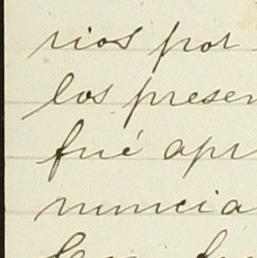 rios por
los presen
fué apr
nuncia